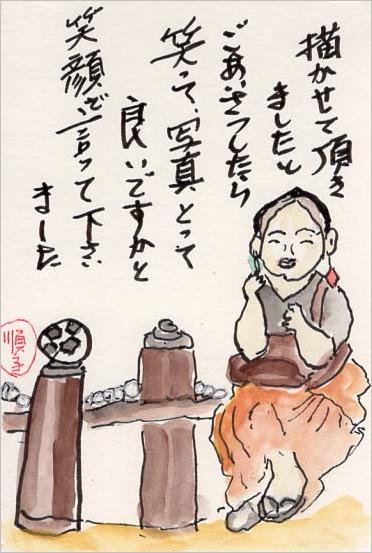 描かせて頂き
ましたと
ごあいさつしたら
笑って、写真とって
良いですかと
笑顔で言って下さい
ました
順子